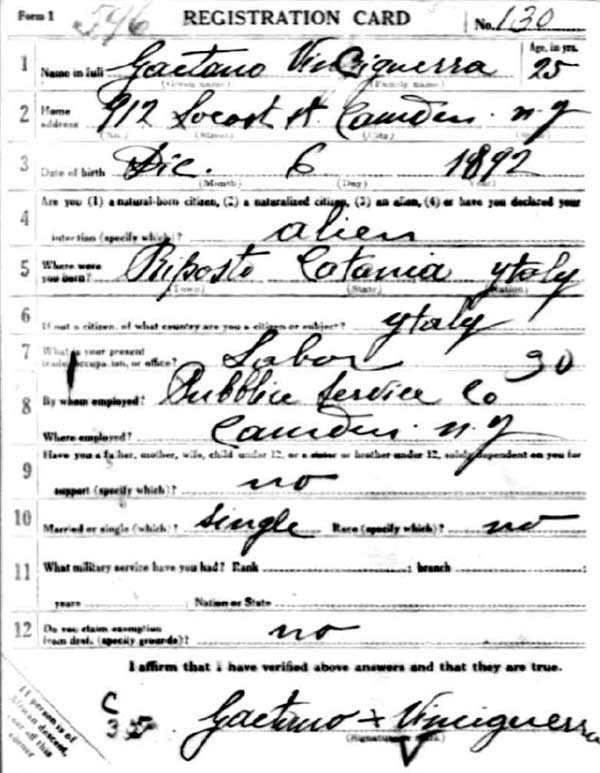 Form 1 546 REGISTRATION CARD No. 130
1 Name in full Gaetano Vinciguerra Age, in yrs. 25
(Given name) (Family name)
2 Home address 912 Locost St. Camden. n-J
(No.) (Street) (City) (State)
3 Date of birth Dic. 6 1892
(Month) (Day) (Year)
4 Are you (1) a natural-born citizen, (2) a naturalized citizen, (3) an alien, (4) or have you declared your
intention (specify which)? alien
5 Where were you born? Riposto Catania ytaly
(Town) (State) (Nation)
6 If not a citizen, of what country are you a citizen or subject? ytaly
7 What is your present trade, occupation, or office? Labor 30
8 By whom employed? Pubblice Service Co
Where employed? Camden. n-J
9 Have you a father, mother, wife, child under 12, or a sister or brother under 12, solely dependent on you for
support (specify which)? no
10 Married or single (which)? single Race (specify which)? no
11 What military service have you had? Rank ; branch ;
years Nation or State
12 Do you claim exemption from draft (specify grounds)? no
I affirm that I have verified above answers and that they are true.
If person is of
African descent,
tear off this
corner
C
35
Gaetano x Vinciguerra
(Signature or mark)